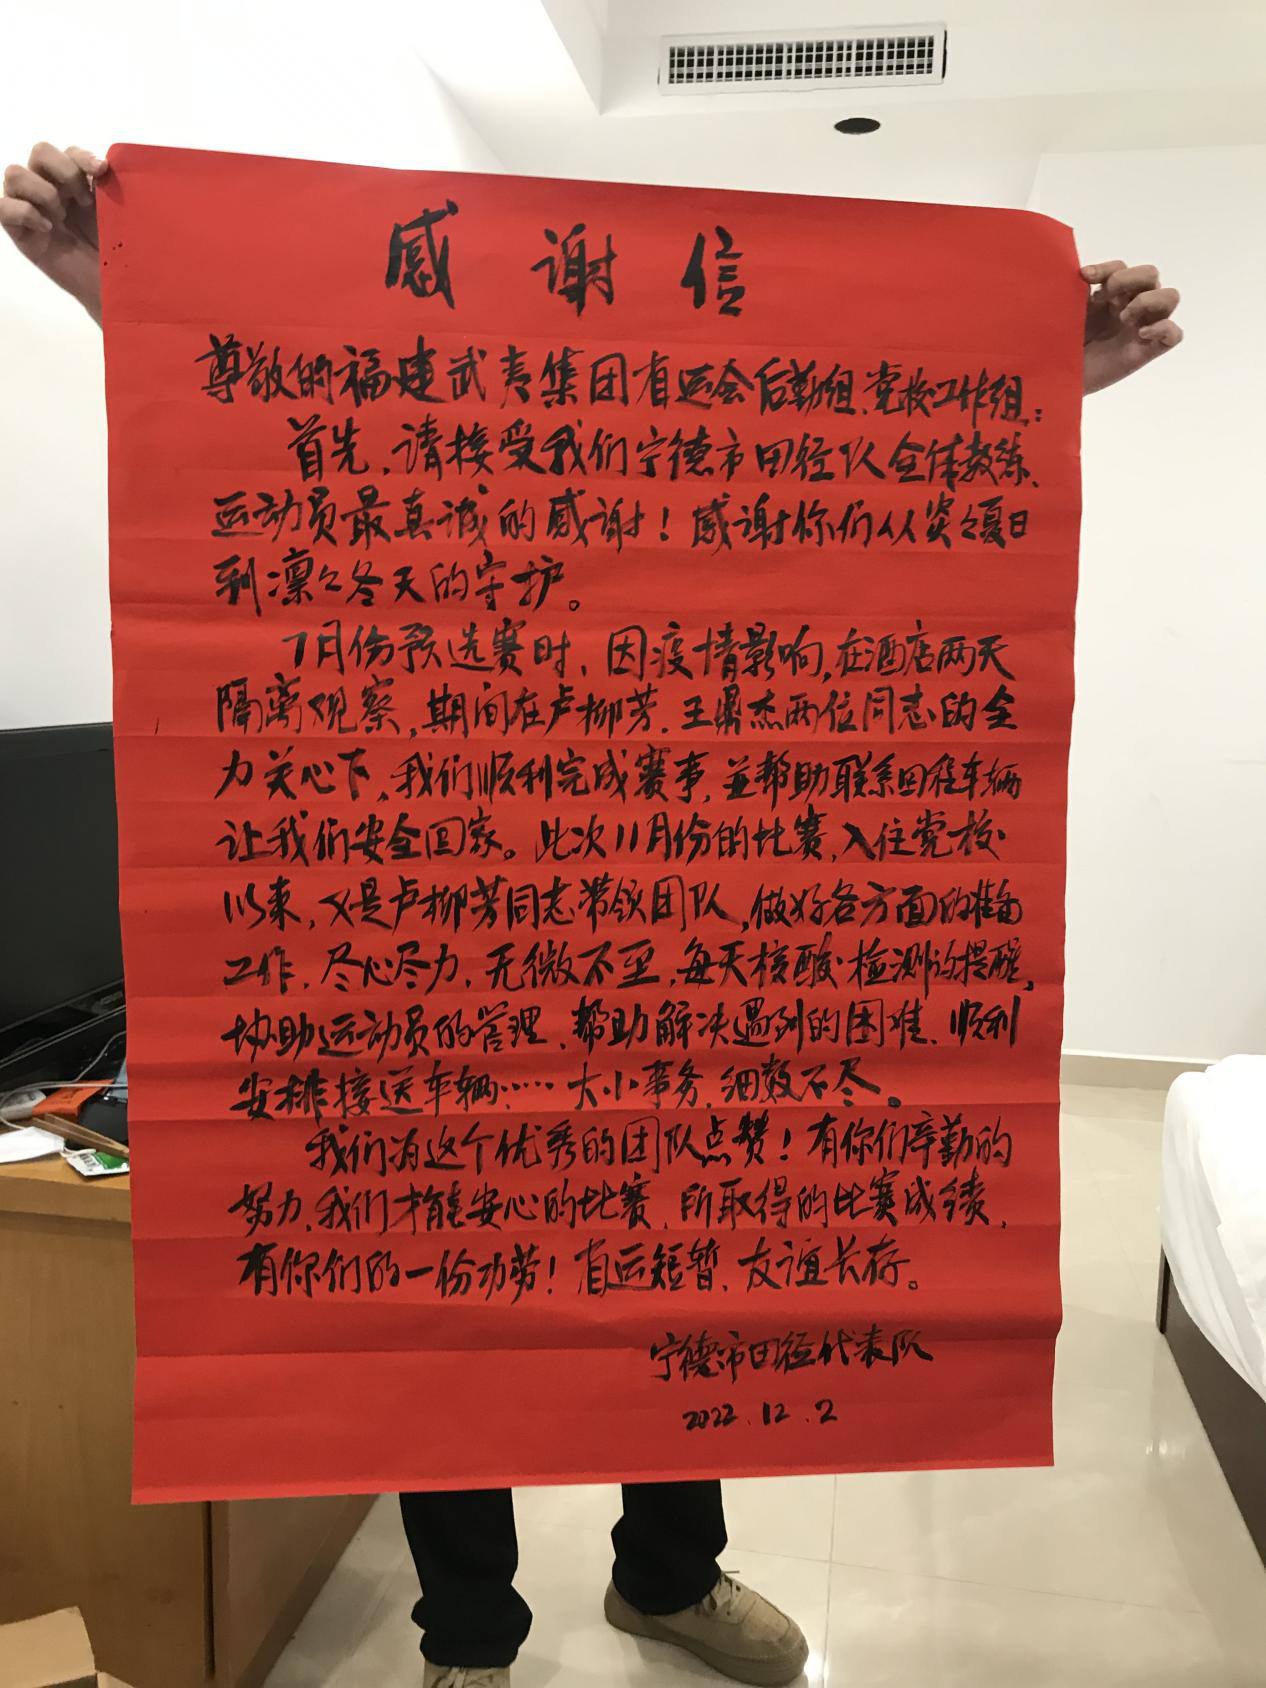 感谢信
尊敬的福建武夷集团省运会后勤组、党校工作组:
首先,请接受我们宁德市田径队全体教练、
运动员最真诚的感谢!感谢你们从炎々夏日
到凛々冬天的守护。
7月份预选赛时,因疫情影响,在酒店两天
隔离观察,期间在卢柳芳、王鼎杰两位同志的全
力关心下,我们顺利完成赛事,并帮助联系回程车辆
让我们安全回家。此次11月份的比赛,入住党校
以来,又是卢柳芳同志带领团队,做好各方面的准备
工作,尽心尽力,无微不至,每天核酸检测的提醒,
协助运动员的管理、帮助解决遇到的困难、顺利
安排接送车辆……大小事务,细数不尽。
我们为这个优秀的团队点赞!有你们辛勤的
努力,我们才能安心的比赛,所取得的比赛成绩,
有你们的一份功劳!省运短暂,友谊长存。
宁德市田径代表队
2022.12.2